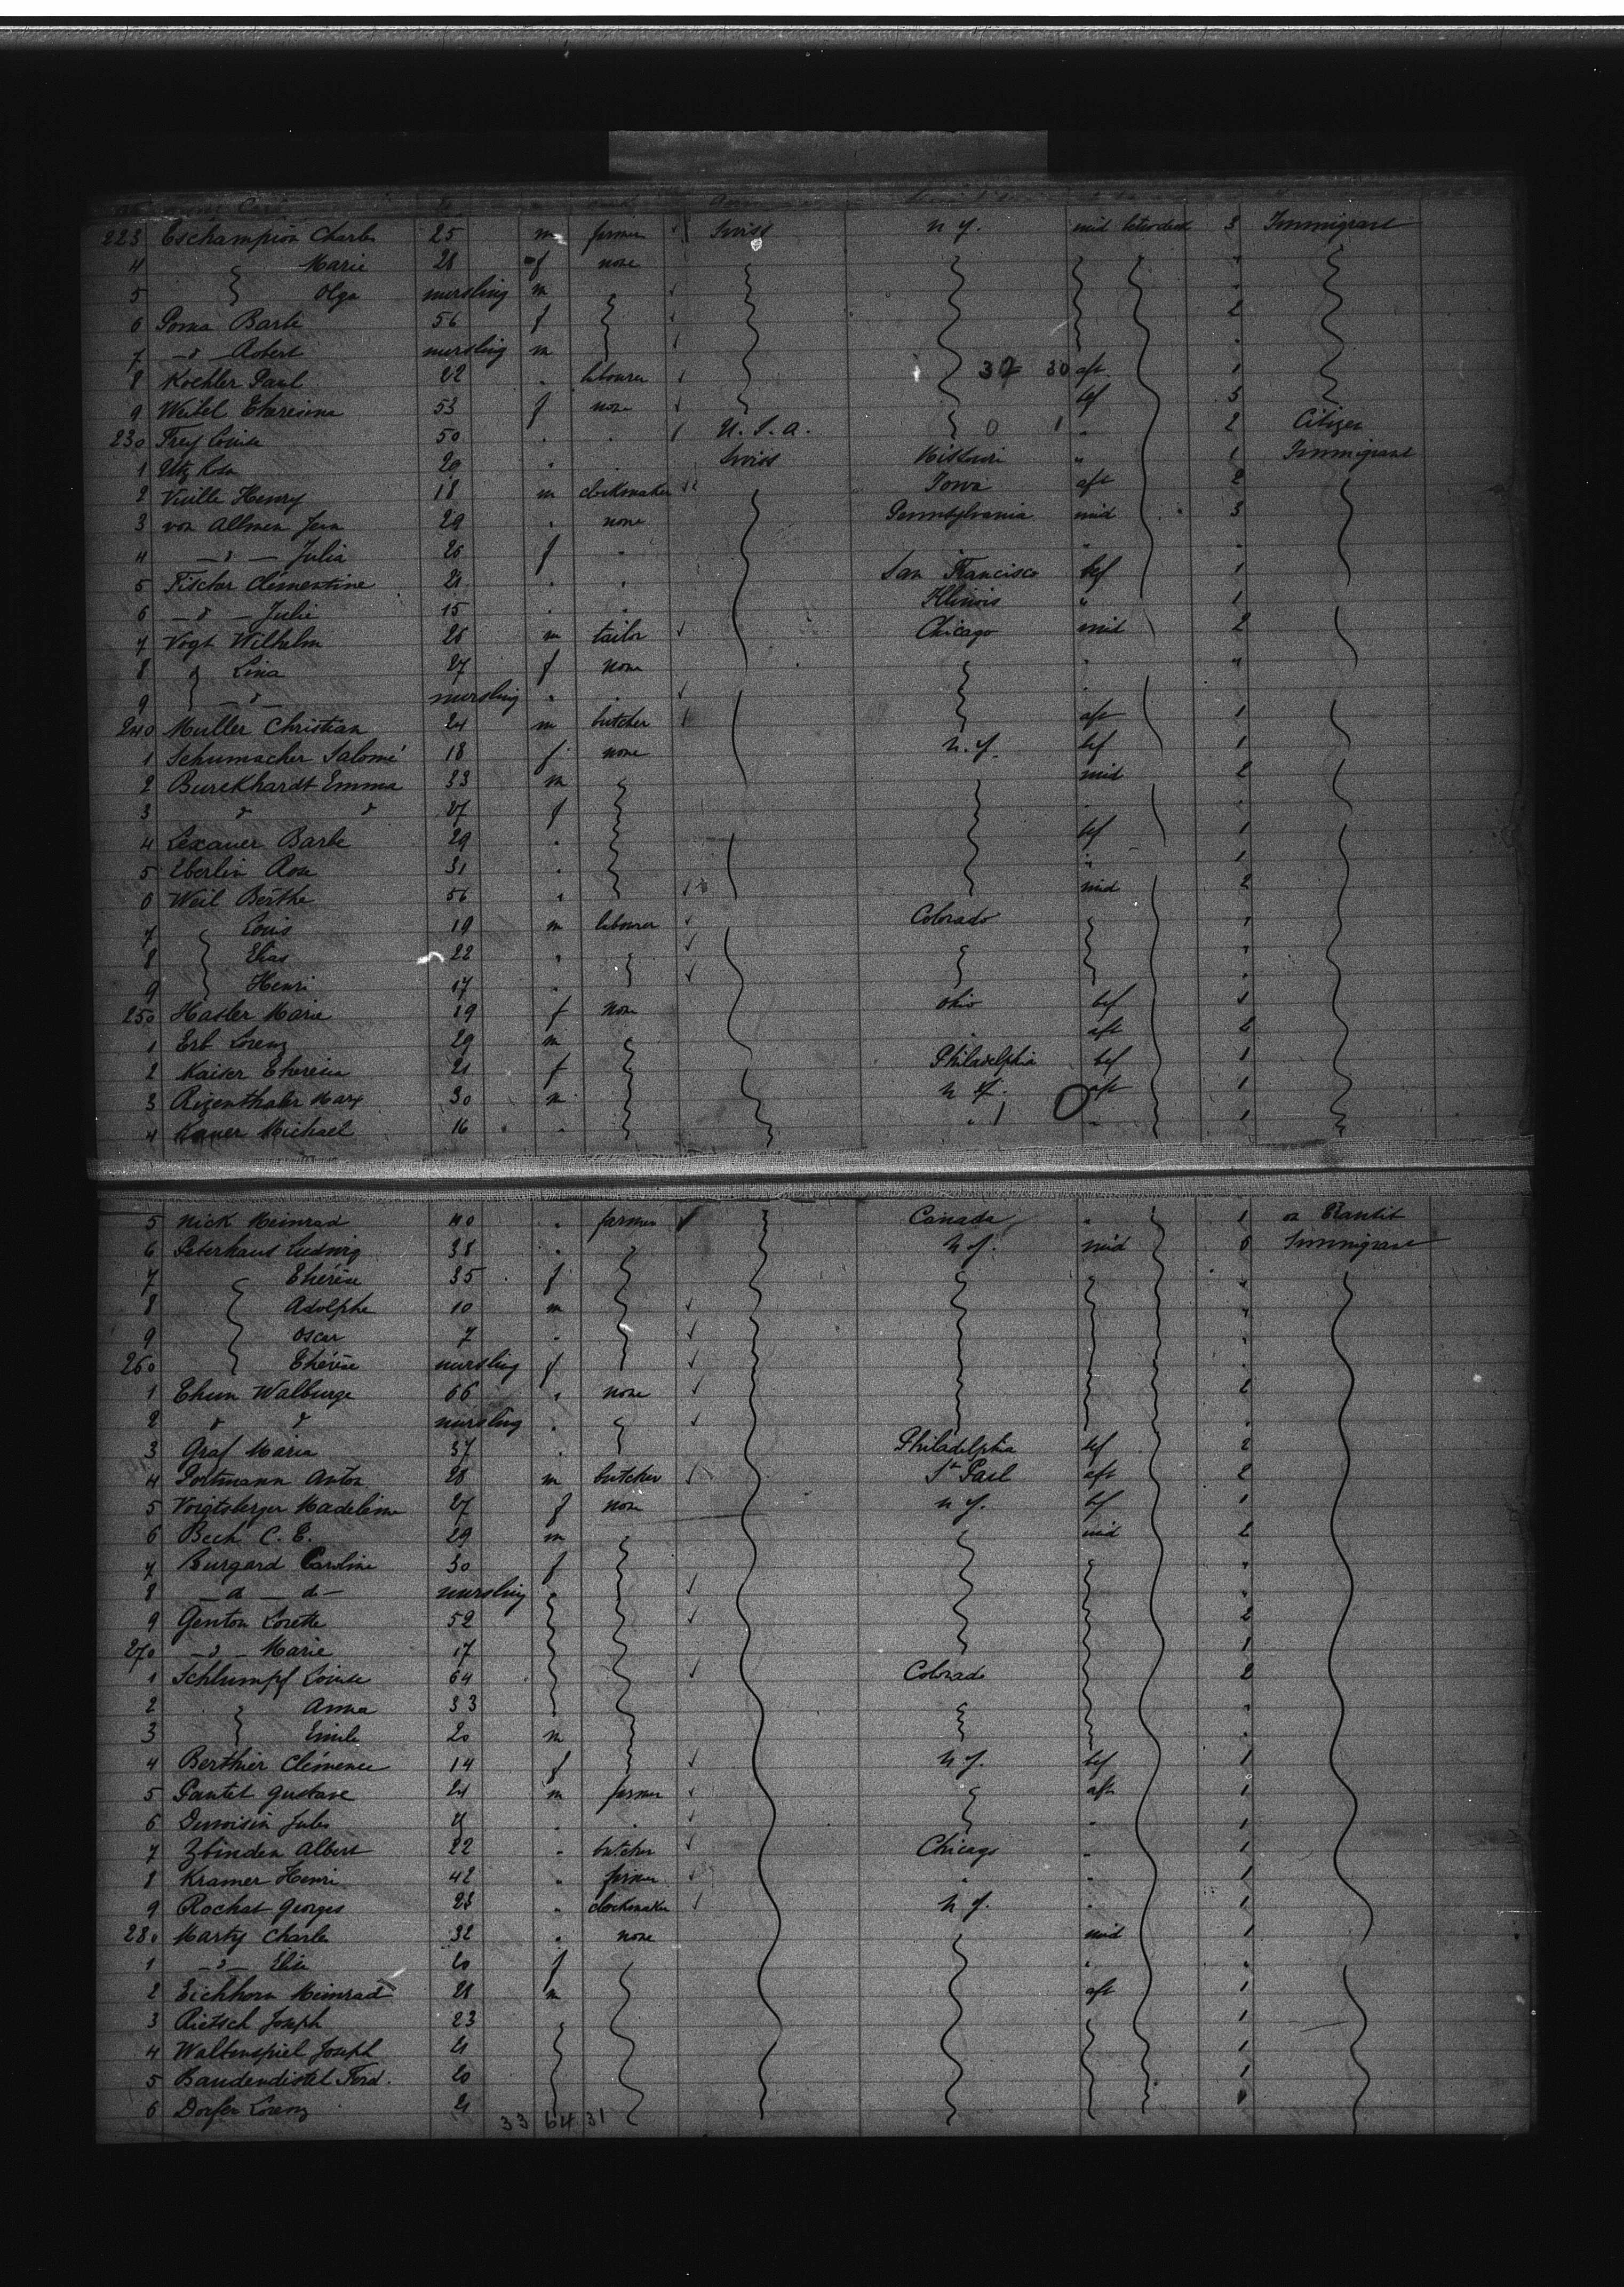 223 Eschampion Charles 25 m farmer Swiss n y. mid betw deck 3 Immigrant
4 Marie 28 f none "
5 Olga nursling m "
6 Poma Barbe 56 f 2
7 -d- Robert nursling m "
8 Kochler Paul 22 " labourer 37 30 aft. 1
9 Weibel Theresina 53 f none bef 3
230 Frey Louise 50 " " U. S. a. 0 1 " 2 Citizen
1 Utz Rosa 29 " " Swiss Missouri " 1 Immigrant
2 Vuille Henry 18 m clockmaker Iowa aft 2
3 von Allmen Jean 29 " none Pennsylvania mid 3
4 -d- Julia 26 f " " "
5 Fischer Clémentine 21 " " San Francisco bef 1
6 -d- Julie 15 " " Illinois " 1
7 Vogt Wilhelm 26 m tailor Chicago mid 2
8 Lina 27 f none " "
9 -d- nursling " " "
240 Muller Christian 24 m butcher aft 1
1 Schumacher Salomé 18 f none n. y. bef 1
2 Burckhardt Emma 33 m mid 2
3 d d 27 f " "
4 Lexauer Barbe 29 " bef 1
5 Eberlin Rosa 31 " " 1
6 Weil Berthe 56 " mid 2
7 Louis 19 m labourer Colorado "
8 Elias 22 " "
9 Henri 17 " "
250 Hasler Marie 19 f none Ohio bef 1
1 Erb Lorenz 29 m " aft 2
2 Kaiser Theresia 21 f Philadelphia bef 1
3 Rizenthaler Marx 30 m n y. aft 1
4 Kauer Michael 16 " " 1 " 1
5 Nick Meinrad 40 " farmer Canada " 1
6 Peterhans Ludwig 38 " n y. mid 5 Immigrant
7 Thérèse 35 f "
8 Adolphe 10 m "
9 Oscar 7 " "
260 Thérèse nursling f "
1 Thum Walburga 66 " none 2
2 d d nursling " "
3 Graf Maria 37 " Philadelphia bef 2
4 Portmann Anton 28 m butcher St Paul aft 2
5 Voigtsberger Madeleine 27 f none n y. bef 1
6 Bech C. E. 29 m mid 2
7 Burgard Caroline 30 f "
8 -d- -d- nursling " "
9 Genton Lorette 52 2
270 -d- Marie 17 1
1 Schlumpf Louise 64 Colorado 2
2 Anna 33 "
3 Emile 20 m "
4 Berthier Clémence 14 f n y. bef 1
5 Pantet Gustave 24 m farmer aft 1
6 Jules " " " 1
7 Zbinden Albert 22 " butcher Chicago " 1
8 Kramer Henri 42 " farmer " " 1
9 Rochat Georges 28 " clockmaker n y. " 1
280 Marty Charles 32 " none mid 1
1 -d- Elise 20 f " "
2 Eichhorn Meinrad 28 m aft 1
3 Rietsch Joseph 23 1
4 Waltenspiel Joseph 21 1
5 Baudendistel Ferd. 20 1
6 Dorfer Lorenz 21
33 64 31